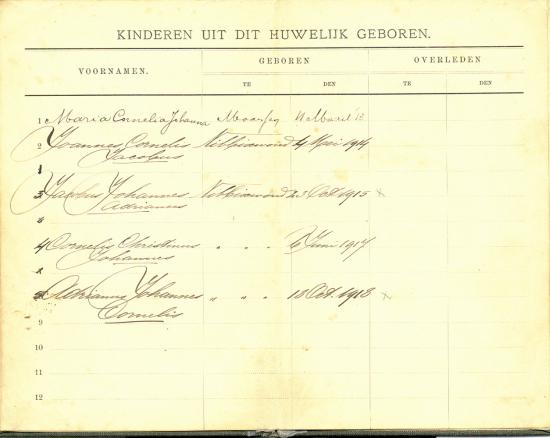 KINDEREN UIT DIT HUWELIJK GEBOREN.
VOORNAMEN. GEBOREN OVERLEDEN
TE DEN TE DEN
1 Maria Cornelia Johanna 11 '13
2 Joannes Cornelis 4 Mei 1914
Jacobus
3 Jacobus Johannes 23 Oct 1915 x
Adrianus
4 Cornelis Christinus " " " 6 Juni 1917
Johannes
5 Adrianus Johannes " " " 18 Oct. 1918 x
Cornelis
9
10
11
12